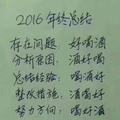 2016年终总结
存在问题：好喝酒
分析原因：酒好喝
总结经验：喝酒好
整改措施：酒喝好
努力方向：喝好酒